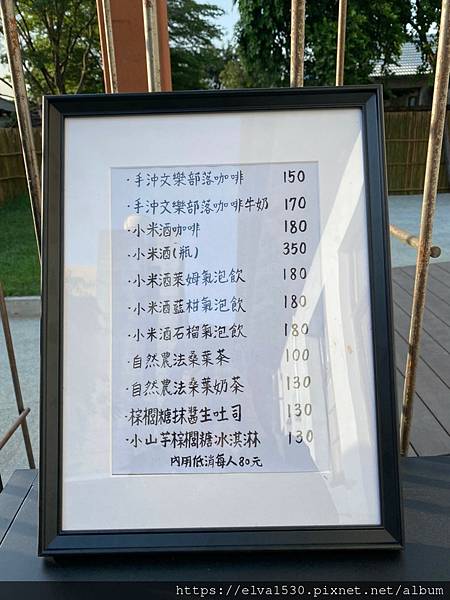 ·手沖文樂部落咖啡 150
·手沖文樂部落咖啡牛奶 170
·小米酒咖啡 180
·小米酒(瓶) 350
·小米酒萊姆氣泡飲 180
·小米酒藍柑氣泡飲 180
·小米酒石榴氣泡飲 180
·自然農法桑葉茶 100
·自然農法桑葉奶茶 130
·棕櫚糖抹醬生吐司 130
·小山芋棕櫚糖冰淇淋 130
內用低消每人80元
https://elva1530.pixnet.net/album